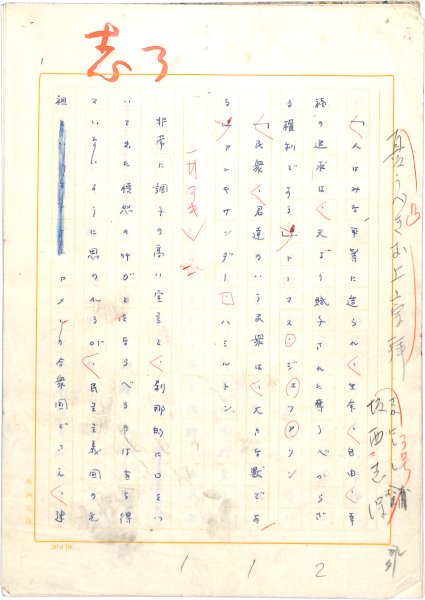 志了
憂うべきお上崇拝
坂西志保
「人はみな平等に造られ、生命、自由、幸
福の追求は、天より賦予された奪うべからざ
る権利である」トーマス・ジェファソン
「民衆、君達のいう民衆は、大きな獣であ
る」アレキサンダー・ハミルトン
一行アキ
非常に調子の高い宣言と、刹那的に口をつ
いて出た憤怒の叫びとをならべるのは当を得
ていないように思われるが、民主主義国の元
祖アメリカ合衆国でさえ、建
112